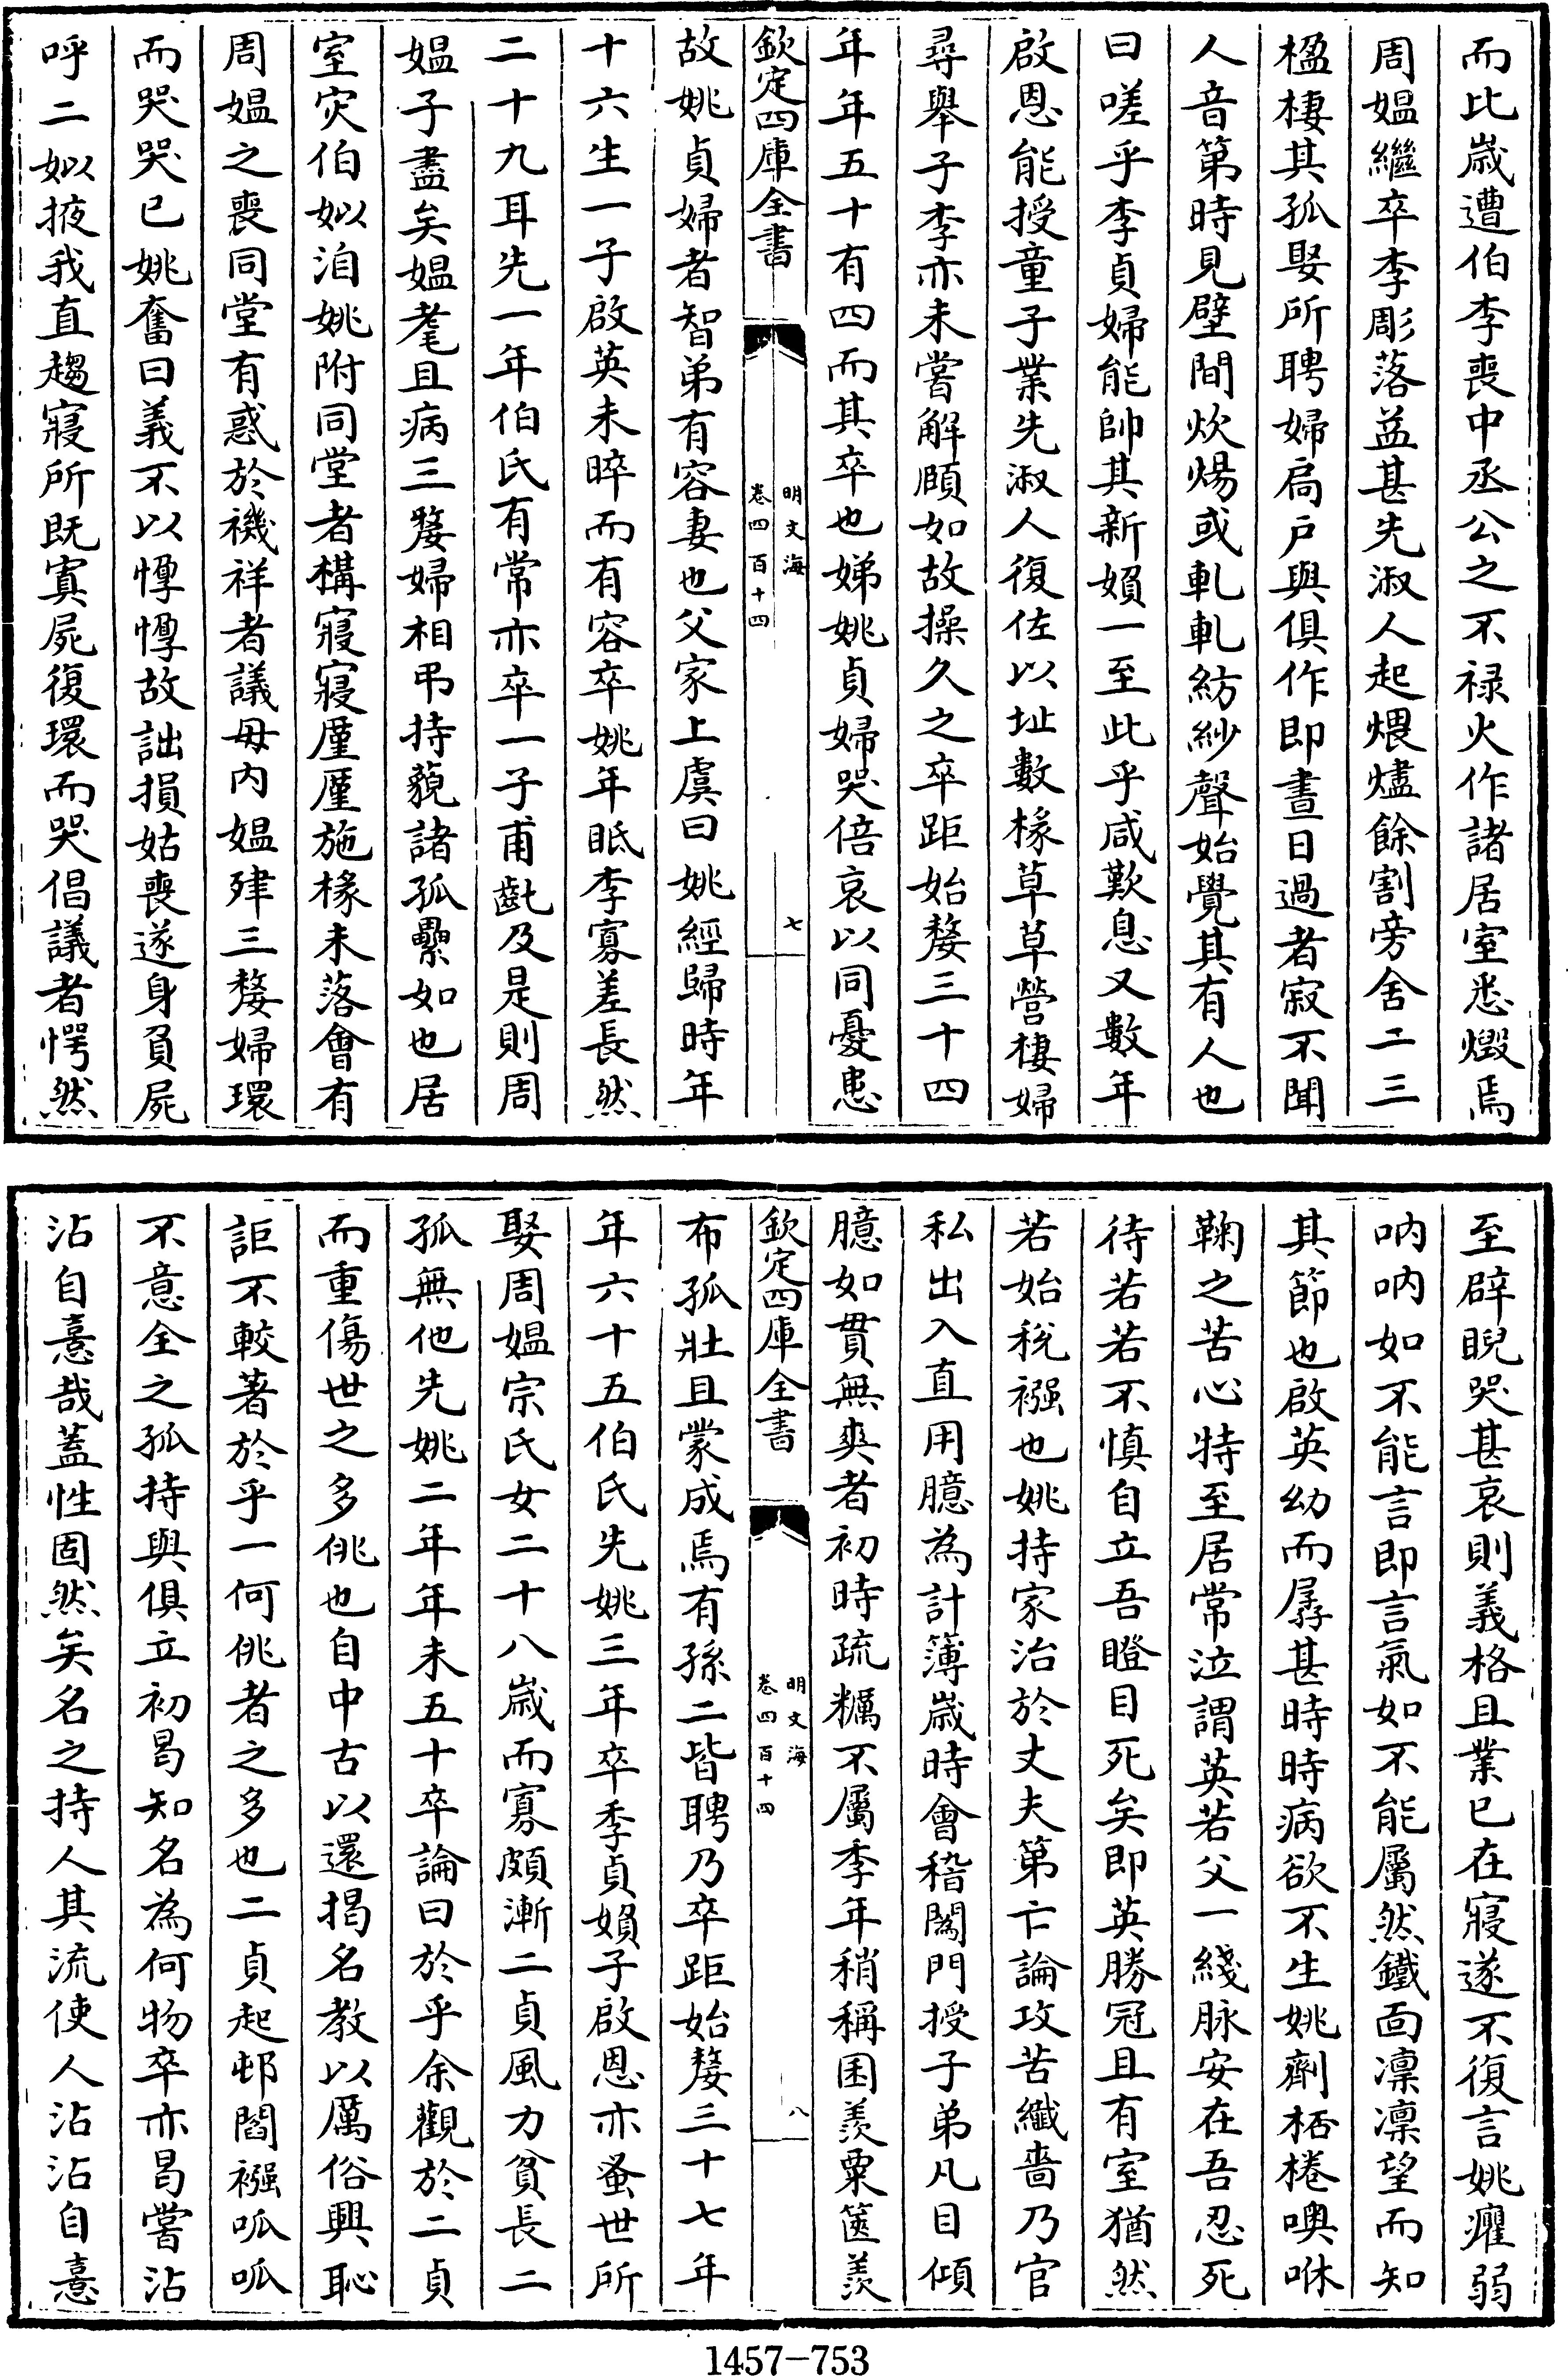 而比歲遭伯李喪中丞公之不禄火作諸居室悉燬焉
周媼繼卒李彫落益甚先淑人起煨燼餘割旁舍二三
楹棲其孤娶所聘婦扃戶與俱作即晝日過者寂不聞
人音第時見壁間炊煬或軋軋紡紗聲始覺其有人也
曰嗟乎李貞婦能帥其新媍一至此乎咸歎息又數年
啟恩能授童子業先淑人復佐以址數椽草草營棲婦
尋舉子李亦未嘗解頤如故操久之卒距始嫠三十四
年年五十有四而其卒也娣姚貞婦哭倍哀以同憂患
欽定四庫全書
明文海
卷四百十四
七
故姚貞婦者智弟有容妻也父家上虞曰姚經歸時年
十六生一子啟英未晬而有容卒姚年眂李寡差長然
二十九耳先一年伯氏有常亦卒一子甫齔及是則周
媼子盡矣媼耄且病三嫠婦相弔持藐諸孤纍如也居
室灾伯姒洎姚附同堂者構寢寢厪厪施椽未落會有
周媼之喪同堂有惑於禨祥者議毋内媼肂三嫠婦環
而哭哭已姚奮曰義不以惸惸故詘損姑喪遂身負屍
呼二姒掖我直趨寢所既寘屍復環而哭倡議者愕然
至辟睨哭甚哀則義格且業已在寢遂不復言姚癯弱
吶吶如不能言即言氣如不能屬然鐵面凛凛望而知
其節也啟英幼而孱甚時時病欲不生姚劑栝棬噢咻
鞠之苦心特至居常泣謂英若父一綫脉安在吾忍死
待若若不慎自立吾瞪目死矣即英勝冠且有室猶然
若始稅襁也姚持家治於丈夫第亡論攻苦纖嗇乃官
私出入直用臆為計簿歲時會稽闔門授子弟凡目傾
臆如貫無爽者初時疏糲不屬季年稍稱囷羨粟篋羨
欽定四庫全書
明文海
卷四百十四
八
布孤壯且蒙成焉有孫二皆聘乃卒距始嫠三十七年
年六十五伯氏先姚三年卒季貞媍子啟恩亦蚤世所
娶周媼宗氏女二十八歲而寡頗漸二貞風力貧長二
孤無他先姚二年年未五十卒論曰於乎余觀於二貞
而重傷世之多佻也自中古以還揭名教以厲俗興恥
詎不較著於乎一何佻者之多也二貞起邨閻襁呱呱
不意全之孤持與俱立初曷知名為何物卒亦曷嘗沾
沾自憙哉蓋性固然矣名之持人其流使人沾沾自憙
1457-753